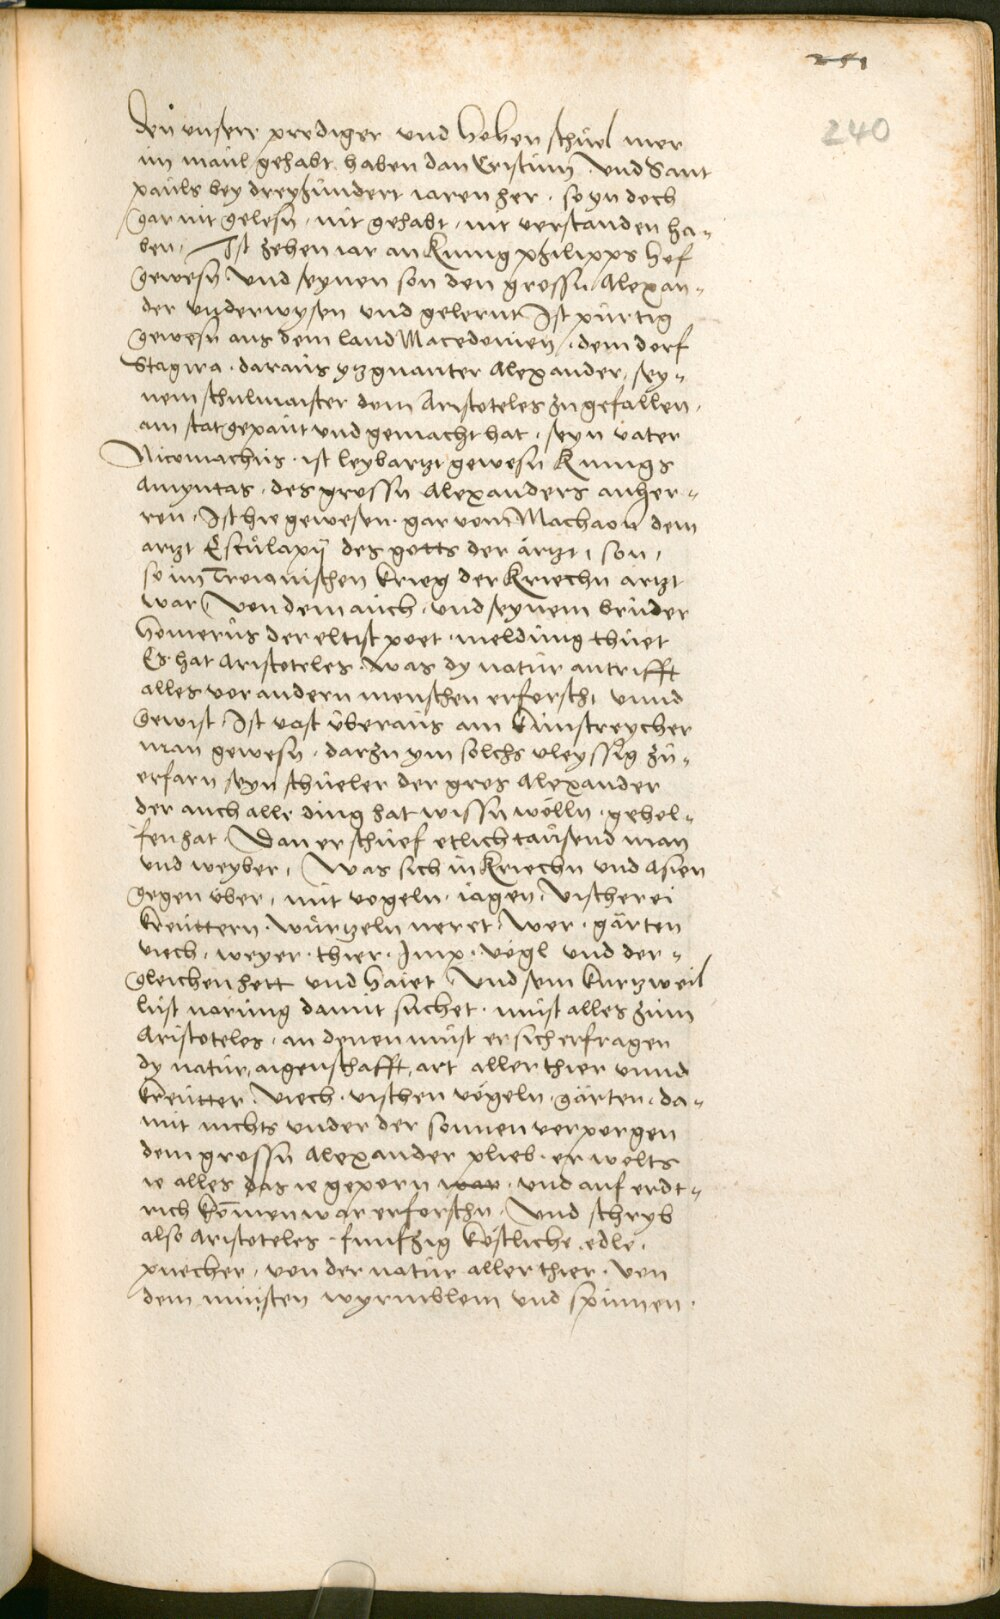 251
240
den unsere prediger und hohen schuel mer
im maul gehabt haben dan Cristum und Sant
pauls bey dreyhundert iaren her · so yn doch
gar nit gelesn · nit gehabt · nit verstanden ha-
ben · Ist zehen iar an Kunig philipps hof
gewesn und seynen son den grossn Alexan-
der underwysen und gelernt Ist pürtig
gewesn aus dem land Macedonien · dem dorf
Stagira · daraus ytzgnanter Alexander · sey-
nem schulmaister dem Aristoteles zu gefallen ·
ain stat gepaut und gemacht hat · seyn vater
Nicomachus · ist leybartzt gewesn Kunigs
Amyntas · des grossn Alexanders anher-
ren · Ist hie gewesen · gar vom Machaon dem
artzt Esculapij des gotts der ärtzt · son ·
so im Troianischen krieg der Kriechn artzt
war · Von dem auch · und seynem bruder
homerus der eltist poet · meldung thuet
Es hat Aristoteles · was dy natur antrifft
alles vor andern menschen erforscht unnd
gewist · Ist vast überaus ain kunstreycher
man gewesn · darzu ym solchs vleyssig zu-
erfarn seyn schueler der gros Alexander
der auch alle ding hat wissn wölln · gehol-
fen hat · Dan er schuef etlich tausend man
und weyber · Was sich in Kriechn und Asien
gegen über · mit vogeln · iagen · vischerei
kreuttern · wurtzeln neret · Wer · gärten
viech · weyer · thier · Imp · vögl und der-
gleichen hett und haiet · Und sein kurtzweil
lust narung damit suchet · must alles zum
Aristoteles · an denen must er sich erfragen
dy natur, aigenschafft, art aller thier unnd
kreutter · viech · vischen vögeln · gärten · da-
mit nichts under der sonnen verporgen
dem grossn Alexander plieb · er wolts
ie alles das ie geporn war · und auf erdt-
rich kommen war erforschn · Und schryb
also Aristoteles · funfzig köstliche · edle ·
puecher · von der natur aller thier · von
dem minsten wyrmblem und spinnen ·